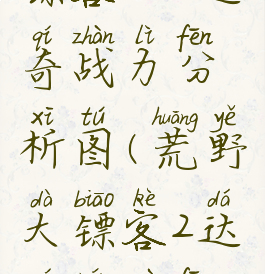 qí zhàn lì fēn
奇战力分
xī tú huāng yě
析图(荒野
dà biāo kè dá
大镖客2达